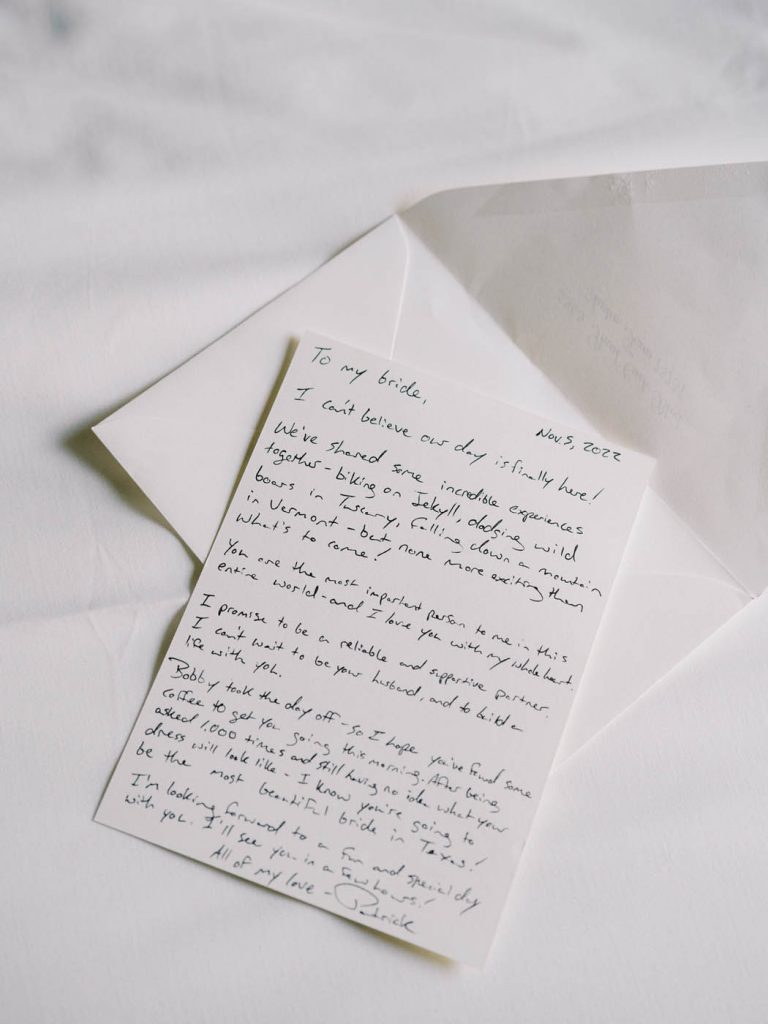 To my bride,
Nov 5, 2022
I can't believe our day is finally here!
We've shared some incredible experiences
together - biking on Jekyll, dodging wild
boars in Tuscany, falling down a mountain
in Vermont - but none more exciting than
what's to come!
You are the most important person to me in this
entire world - and I love you with my whole heart.
I promise to be a reliable and supportive partner.
I can't wait to be your husband, and to build a
life with you.
Bobby took the day off - so I hope you've found some
coffee to get you going this morning. After being
asked 1,000 times and still having no idea what your
dress will look like - I know you're going to
be the most beautiful bride in Texas!
I'm looking forward to a fun and special day
with you. I'll see you in a few hours!
All of my love - Patrick